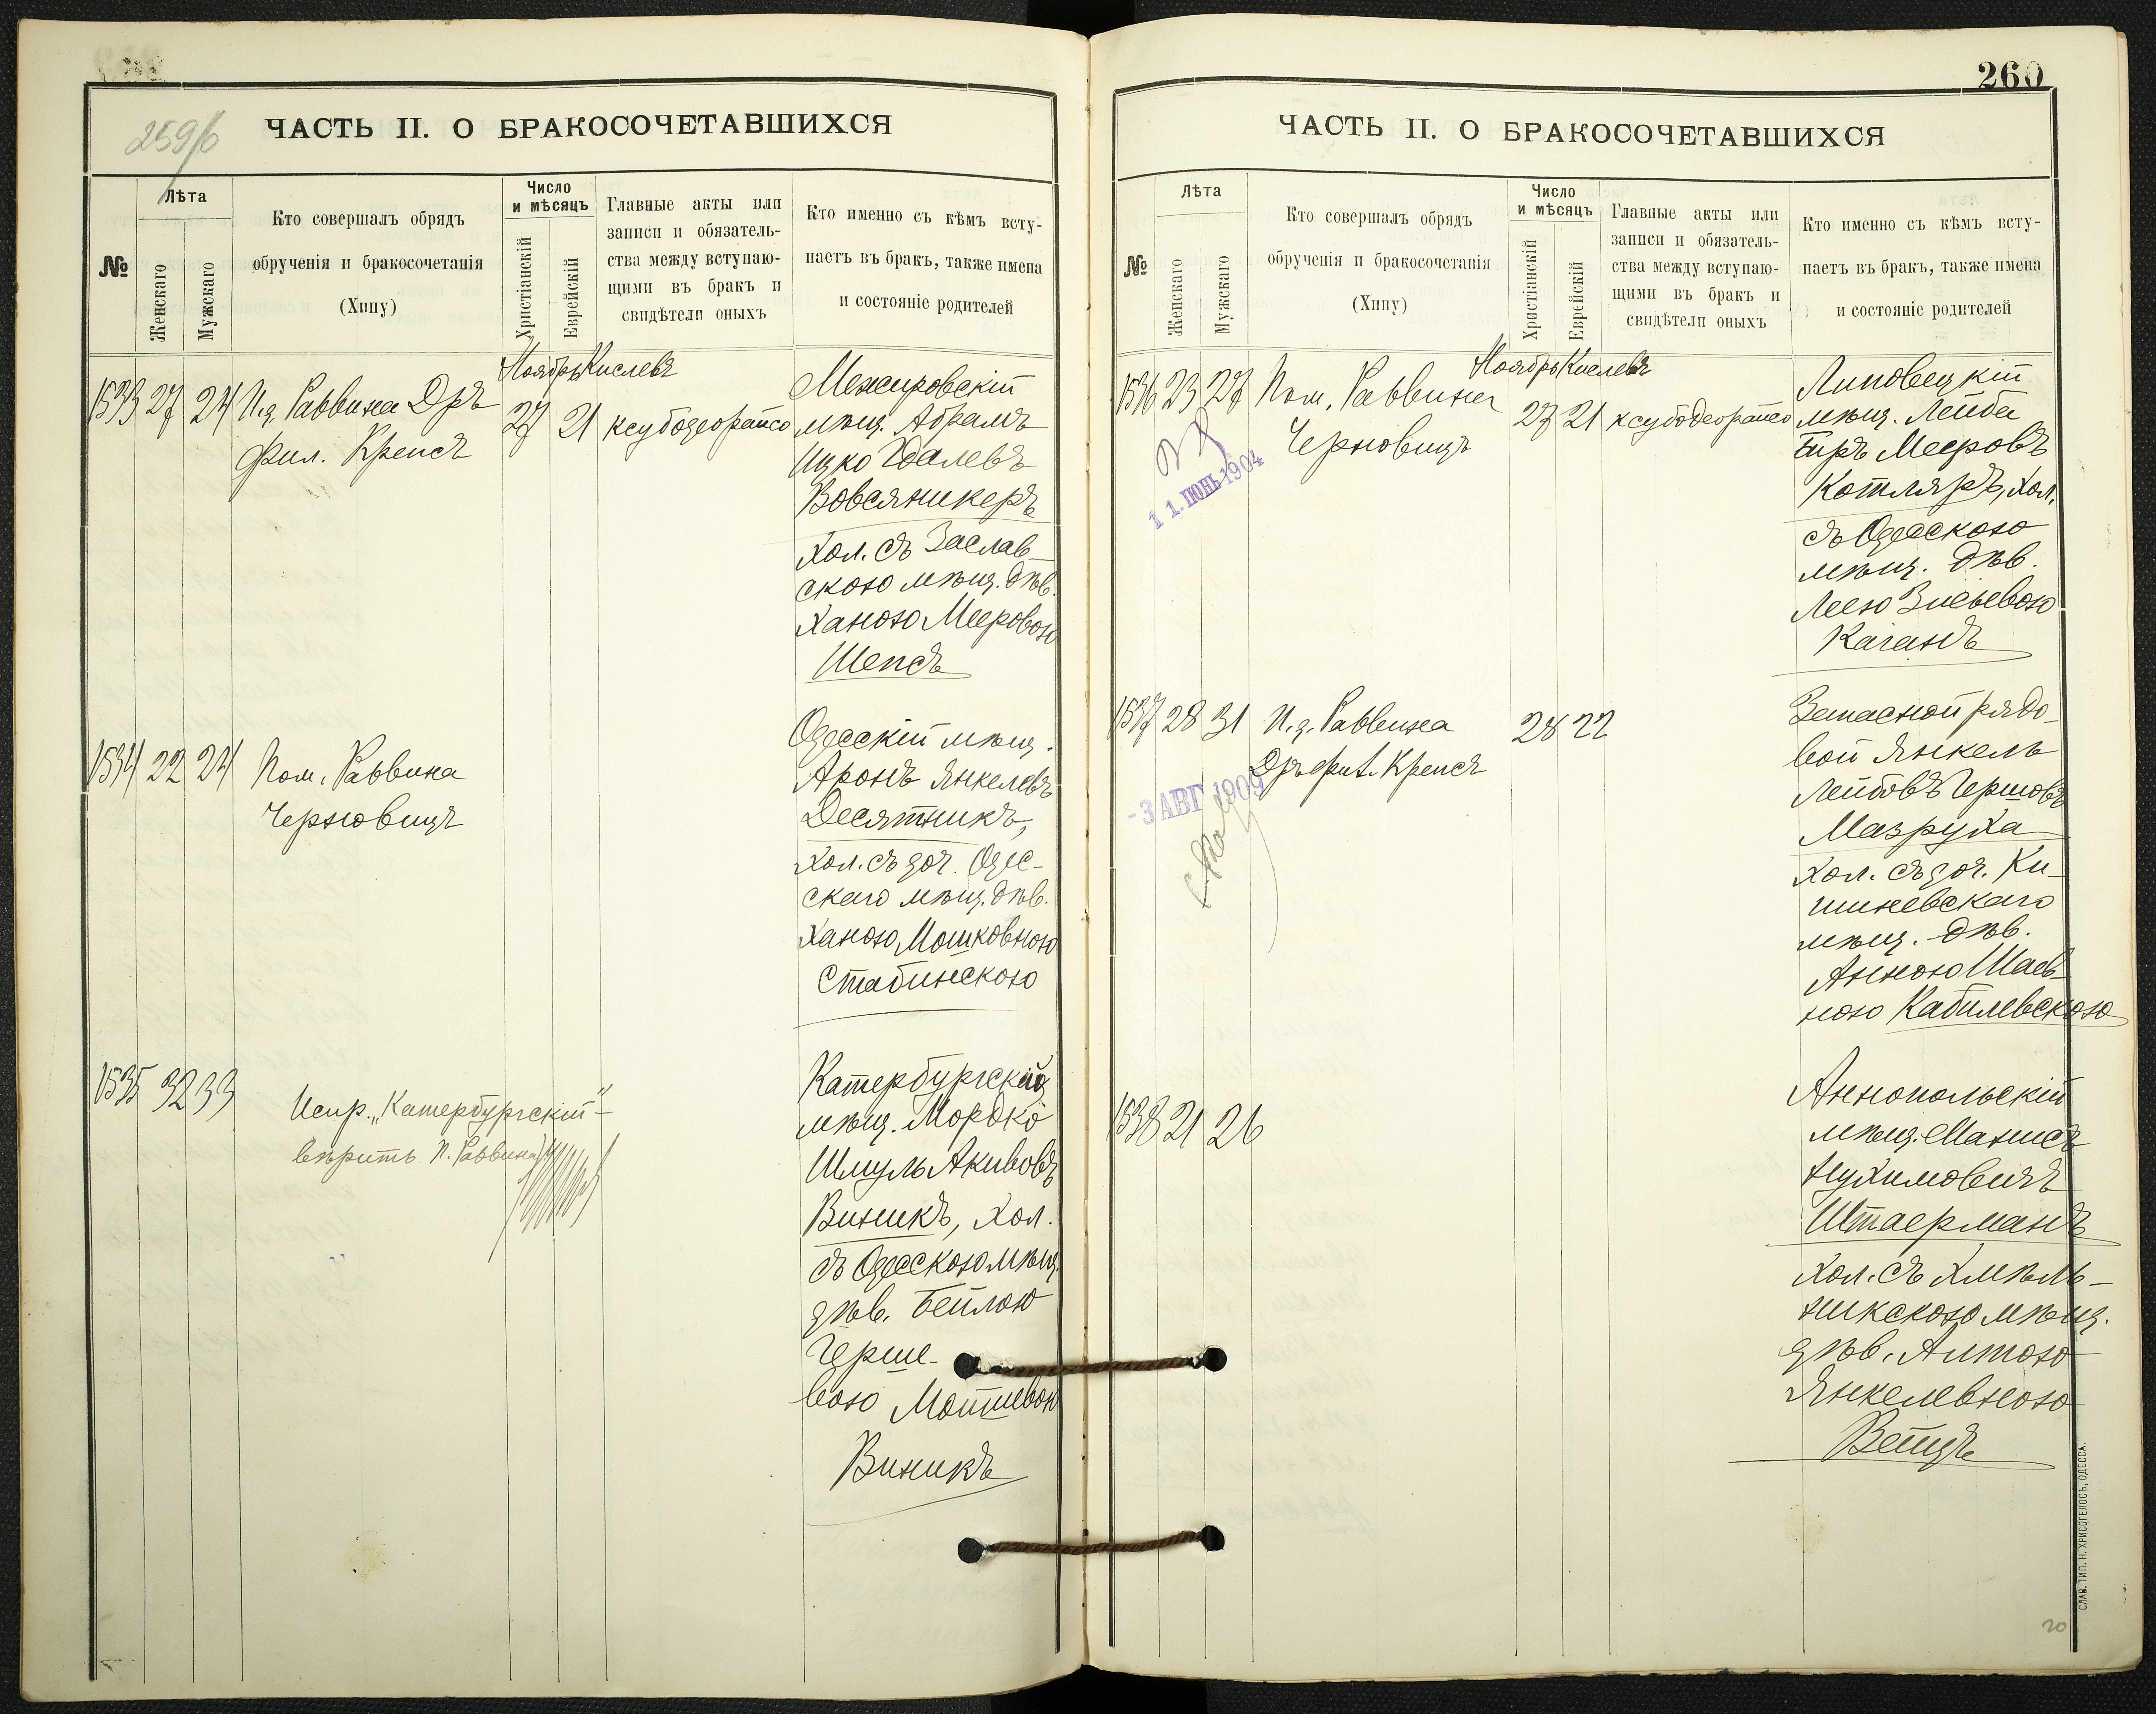 259/б
ЧАСТЬ II. О БРАКОСОЧЕТАВШИХСЯ
№
Лѣта
Женскаго
Мужскаго
Кто совершалъ обрядъ
обрученія и бракосочетанія
(Хипу)
Число
и мѣсяцъ
Христіанскій
Еврейскій
Главные акты или
записи и обязатель-
ства между вступаю-
щими въ бракъ и
свидѣтели оныхъ
Кто именно съ кѣмъ всту-
паетъ въ бракъ, также имена
и состояніе родителей
Ноябрь Кислевъ
1533 27 24 И.д. Раввина Дръ
Фил. Крепсъ
27 21 ксубодеорайсо
Межировскій
мѣщ. Абрамъ
Ицко Гдалевъ
Вовсяникеръ
хол. съ Заслав-
скою мѣщ. дѣв.
Ханою Мееровою
Шепсъ
1534 22 24 Пом. Раввина
Черновицъ
Одесскій мѣщ.
Аронъ Янкелевъ
Десятникъ,
хол. съ доч. Одес-
скаго мѣщ. дѣв.
Ханою Мошковною
Стабинскою
1535 32 33
Испр. „Катербургскій"–
вѣрить. П. Раввина
Катербургскій
мѣщ. Мордко
Шмуль Акивовъ
Виникъ, хол.
съ Одесскою мѣщ.
дѣв. Бейлою
Герше-
вою Мотневою
Виникъ
260
ЧАСТЬ II. О БРАКОСОЧЕТАВШИХСЯ
№
Лѣта
Женскаго
Мужскаго
Кто совершалъ обрядъ
обрученія и бракосочетанія
(Хипу)
Число
и мѣсяцъ
Христіанскій
Еврейскій
Главные акты или
записи и обязатель-
ства между вступаю-
щими въ бракъ и
свидѣтели оныхъ
Кто именно съ кѣмъ всту-
паетъ въ бракъ, также имена
и состояніе родителей
Ноябрь Кислевъ
1536 23 27 Пом. Раввина
Черновицъ
27 21 ксубодеорайсо
11. ІЮНЬ 1904
Липовецкій
мѣщ. Лейба
Беръ Мееровъ
Котляръ, хол.
съ Одесскою
мѣщ. дѣв.
Леею Зисьевою
Каганъ
1537 28 31 И.д. Раввина
Дръ Фил. Крепсъ
28 22
-3 АВГ 1909
Запасной рядо-
вой Янкель
Лейбовъ Гершовъ
Мазруха
хол. съ доч. Ки-
шиневскаго
мѣщ. дѣв.
Анною Шаев-
ною Кабилевскою
1538 21 26
Аннопольскій
мѣщ. Манисъ
Нухимовичъ
Штаерманъ
хол. съ Хмѣль-
никскою мѣщ.
дѣв. Алтою
Янкелевною
Ветцъ
СЛАВ. ТИП. Н. ХРИСОГЕЛОСЪ, ОДЕССА.
20